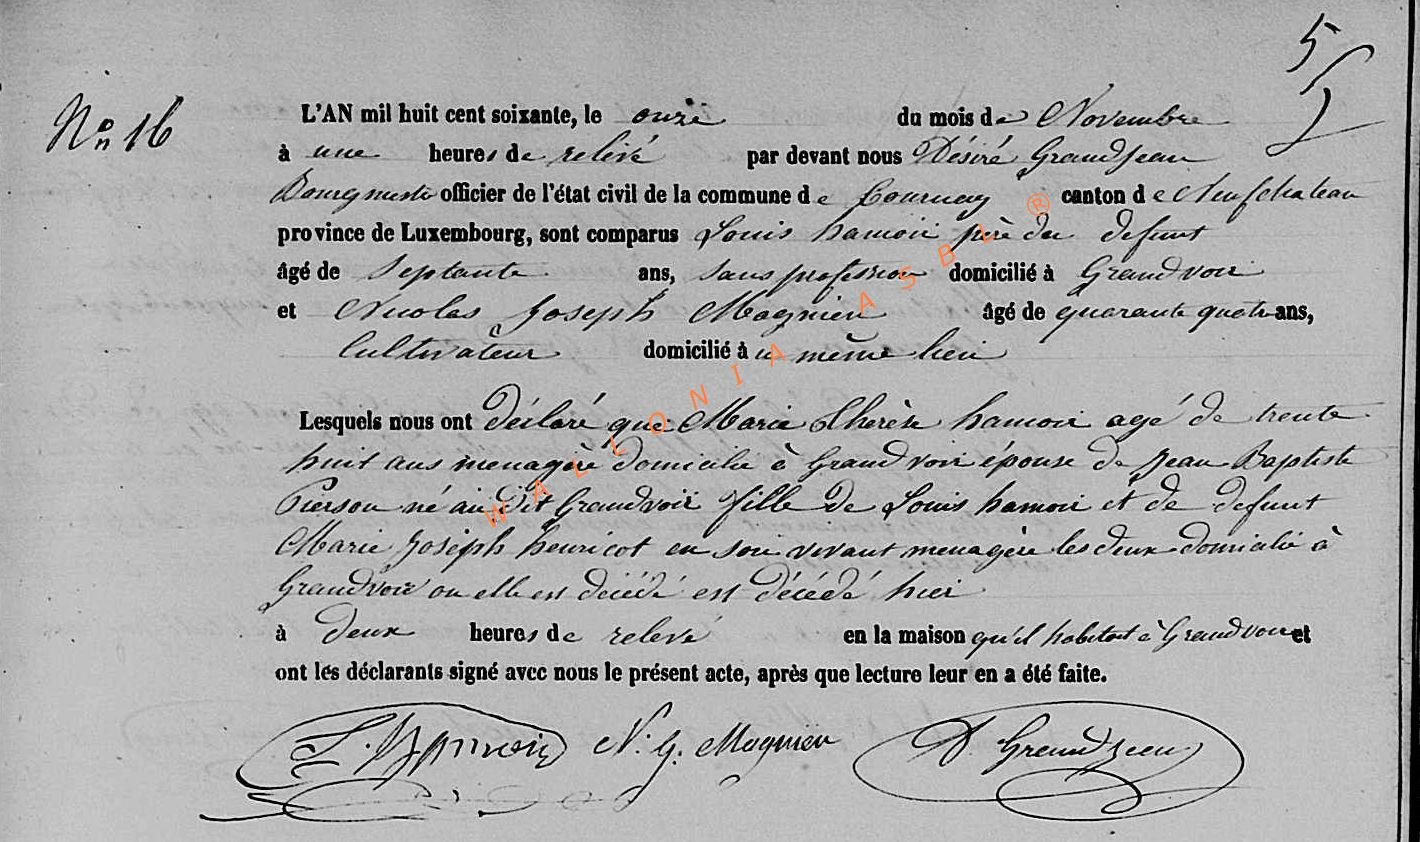 5
N° 16
L'AN mil huit cent soixante, le onze du mois de Novembre
à une heures de relevé par devant nous Désiré Grandjean
Bourgmestre officier de l'état civil de la commune de Tournay canton de Neufchateau
province de Luxembourg, sont comparus Louis hamoir père du defunt
âgé de Septante ans, sans profession domicilié à Grandvoir
et Nicolas Joseph Magnien âgé de quarante quatre ans,
Cultivateur domicilié à u même lieu
Lesquels nous ont déclaré que Marie Thérèse hamoir agé de trente
huit ans menagère domicilié à Grandvoir épouse de Jean Baptiste
Pierson né au dit Grandvoir fille de Louis hamoir et de defunt
Marie Joseph henricot en son vivant menagère les deux domicilié à
Grandvoir ou elle est décédé est décédé hier
à deux heures de relevé en la maison qu'il habitoit à Grandvoir et
ont les déclarants signé avec nous le présent acte, après que lecture leur en a été faite.
L. Hamoir N. J. Magnien D Grandjean
WALLONIA ASBL ®